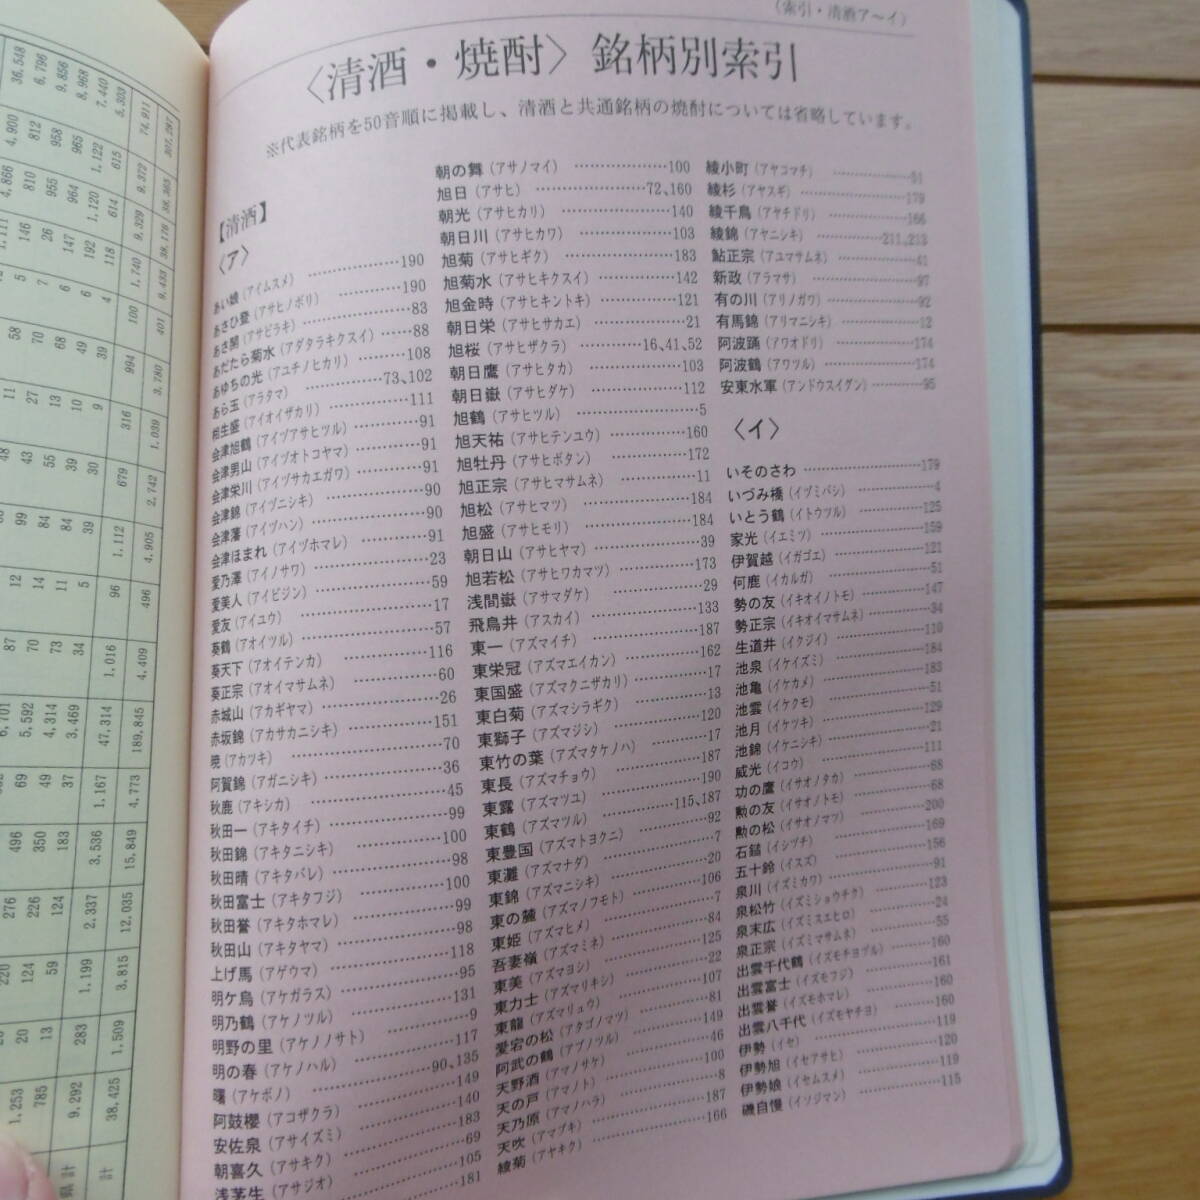 785 13 59 124 183 37 3,469 34 5 39 30 9 39 4 118 614 615 5,303
県計 9,292 283 1,199 2,337 3,536 1,167 47,314 1,016 96 1,112 679 316 994 100 1,740 9,329 9,372 74,911
計 38,425 1,509 3,815 12,035 15,849 4,773 189,845 4,409 496 4,905 2,742 1,039 3,780 401 9,433 38,170 38,365 307,297
(索引・清酒ア～イ)
〈清酒・焼酎〉銘柄別索引
※代表銘柄を50音順に掲載し、清酒と共通銘柄の焼酎については省略しています。
【清酒】
〈ア〉
あい娘(アイムスメ)……190
あさひ登(アサヒノボリ)……190
あさ開(アサビラキ)……83
あだたら菊水(アダタラキクスイ)……88
あゆちの光(アユチノヒカリ)……108
あら玉(アラタマ)……73、102
相生盛(アイオイザカリ)……111
会津旭鶴(アイヅアサヒヅル)……91
会津男山(アイヅオトコヤマ)……91
会津栄川(アイヅサカエガワ)……91
会津錦(アイヅニシキ)……90
会津藩(アイヅハン)……90
会津ほまれ(アイヅホマレ)……91
愛乃澤(アイノサワ)……23
愛美人(アイビジン)……59
愛友(アイユウ)……17
葵鶴(アオイツル)……57
葵天下(アオイテンカ)……116
葵正宗(アオイマサムネ)……60
赤城山(アカギヤマ)……26
赤坂錦(アカサカニシキ)……151
暁(アカツキ)……70
阿賀錦(アガニシキ)……36
秋鹿(アキシカ)……45
秋田一(アキタイチ)……99
秋田錦(アキタニシキ)……100
秋田晴(アキタバレ)……98
秋田富士(アキタフジ)……100
秋田誉(アキタホマレ)……99
秋田山(アキタヤマ)……98
上げ馬(アゲウマ)……118
明ケ烏(アケガラス)……95
明乃鶴(アケノツル)……131
明野の里(アケノノサト)……9
明の春(アケノハル)……117
曙(アケボノ)……90、135
阿鼓櫻(アコザクラ)……149
安佐泉(アサイズミ)……140
朝喜久(アサキク)……183
浅茅生(アサジオ)……69
……105
……181
朝の舞(アサノマイ)……100
旭日(アサヒ)……72、160
朝光(アサヒカリ)……140
朝日川(アサヒカワ)……103
旭菊(アサヒギク)……183
旭菊水(アサヒキクスイ)……142
旭金時(アサヒキントキ)……121
朝日栄(アサヒサカエ)……21
旭桜(アサヒザクラ)……16、41、52
朝日鷹(アサヒタカ)……103
朝日嶽(アサヒダケ)……112
旭鶴(アサヒヅル)……5
旭天祐(アサヒテンユウ)……160
旭牡丹(アサヒボタン)……172
旭正宗(アサヒマサムネ)……11
旭松(アサヒマツ)……184
旭盛(アサヒモリ)……184
朝日山(アサヒヤマ)……39
旭若松(アサヒワカマツ)……173
浅間嶽(アサマダケ)……29
飛鳥井(アスカイ)……133
東一(アズマイチ)……187
東栄冠(アズマエイカン)……162
東国盛(アズマクニザカリ)……17
東白菊(アズマシラギク)……13
東獅子(アズマジシ)……120
東竹の葉(アズマタケノハ)……17
東長(アズマチョウ)……187
東露(アズマツユ)……190
東鶴(アズマヅル)……115、187
東豊国(アズマトヨクニ)……92
東灘(アズマナダ)……7
東錦(アズマニシキ)……20
東の麓(アズマノフモト)……106
東姫(アズマヒメ)……7
吾妻嶺(アズマミネ)……84
東美(アズマヨシ)……125
東力士(アズマリキシ)……22
東龍(アズマリュウ)……107
愛宕の松(アタゴノマツ)……81
阿武の鶴(アブノツル)……149
天野酒(アマノサケ)……46
天の戸(アマノト)……100
天乃原(アマノハラ)……8
天吹(アマブキ)……187
綾菊(アヤキク)……166
綾小町(アヤコマチ)……51
綾杉(アヤスギ)……179
綾千鳥(アヤチドリ)……166
綾錦(アヤニシキ)……211、213
鮎正宗(アユマサムネ)……41
新政(アラマサ)……97
有の川(アリノガワ)……92
有馬錦(アリマニシキ)……12
阿波踊(アワオドリ)……174
阿波鶴(アワツル)……174
安東水軍(アンドウスイグン)……95
〈イ〉
いそのさわ……179
いづみ橋(イヅミバシ)……4
いとう鶴(イトウヅル)……125
家光(イエミツ)……159
伊賀越(イガゴエ)……121
何鹿(イカルガ)……51
勢の友(イキオイノトモ)……147
勢正宗(イキオイマサムネ)……34
生道井(イクジイ)……110
池泉(イケイズミ)……184
池亀(イケカメ)……183
池雲(イケクモ)……51
池月(イケツキ)……129
池錦(イケニシキ)……21
威光(イコウ)……111
功の鷹(イサオノタカ)……68
勲の友(イサオノトモ)……68
勲の松(イサオノマツ)……200
石鎚(イシヅチ)……169
五十鈴(イスズ)……156
泉川(イズミカワ)……91
泉松竹(イズミショウチク)……123
泉末広(イズミスエヒロ)……24
泉正宗(イズミマサムネ)……55
出雲千代鶴(イズモチヨヅル)……160
出雲富士(イズモフジ)……161
出雲誉(イズモホマレ)……160
出雲八千代(イズモヤチヨ)……160
伊勢(イセ)……119
伊勢旭(イセアサヒ)……120
伊勢娘(イセムスメ)……119
磯自慢(イソジマン)……115